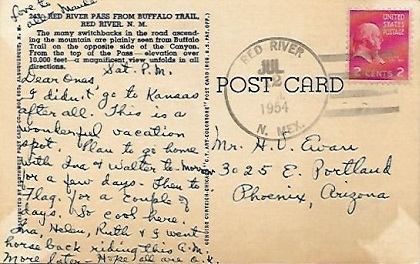 Love to
all - Maude
24359 RED RIVER PASS FROM BUFFALO TRAIL,
RED RIVER, N. M.
The many switchbacks in the road ascend-
ing the mountain are plainly seen from Buffalo
Trail on the opposite side of the Canyon.
From the top of the Pass — elevation over
10,000 feet — a magnificent view unfolds in all
directions.
Sat. P.M.
Dear Ones
I didn't go to Kansas
after all. This is a
wonderful vacation
spot. Plan to go home
with Ina & Walter to-morrow
for a few days. Then to
Flag. for a couple of
days. So cool here.
Ina, Helen, Ruth & I went
horse back riding this A.M.
More later - Hope all are o.k.
RED RIVER
JUL
2
1954
N. MEX.
2 CENTS 2
POST CARD
Mr. H. V. Ewan
3025 E. Portland
Phoenix, Arizona